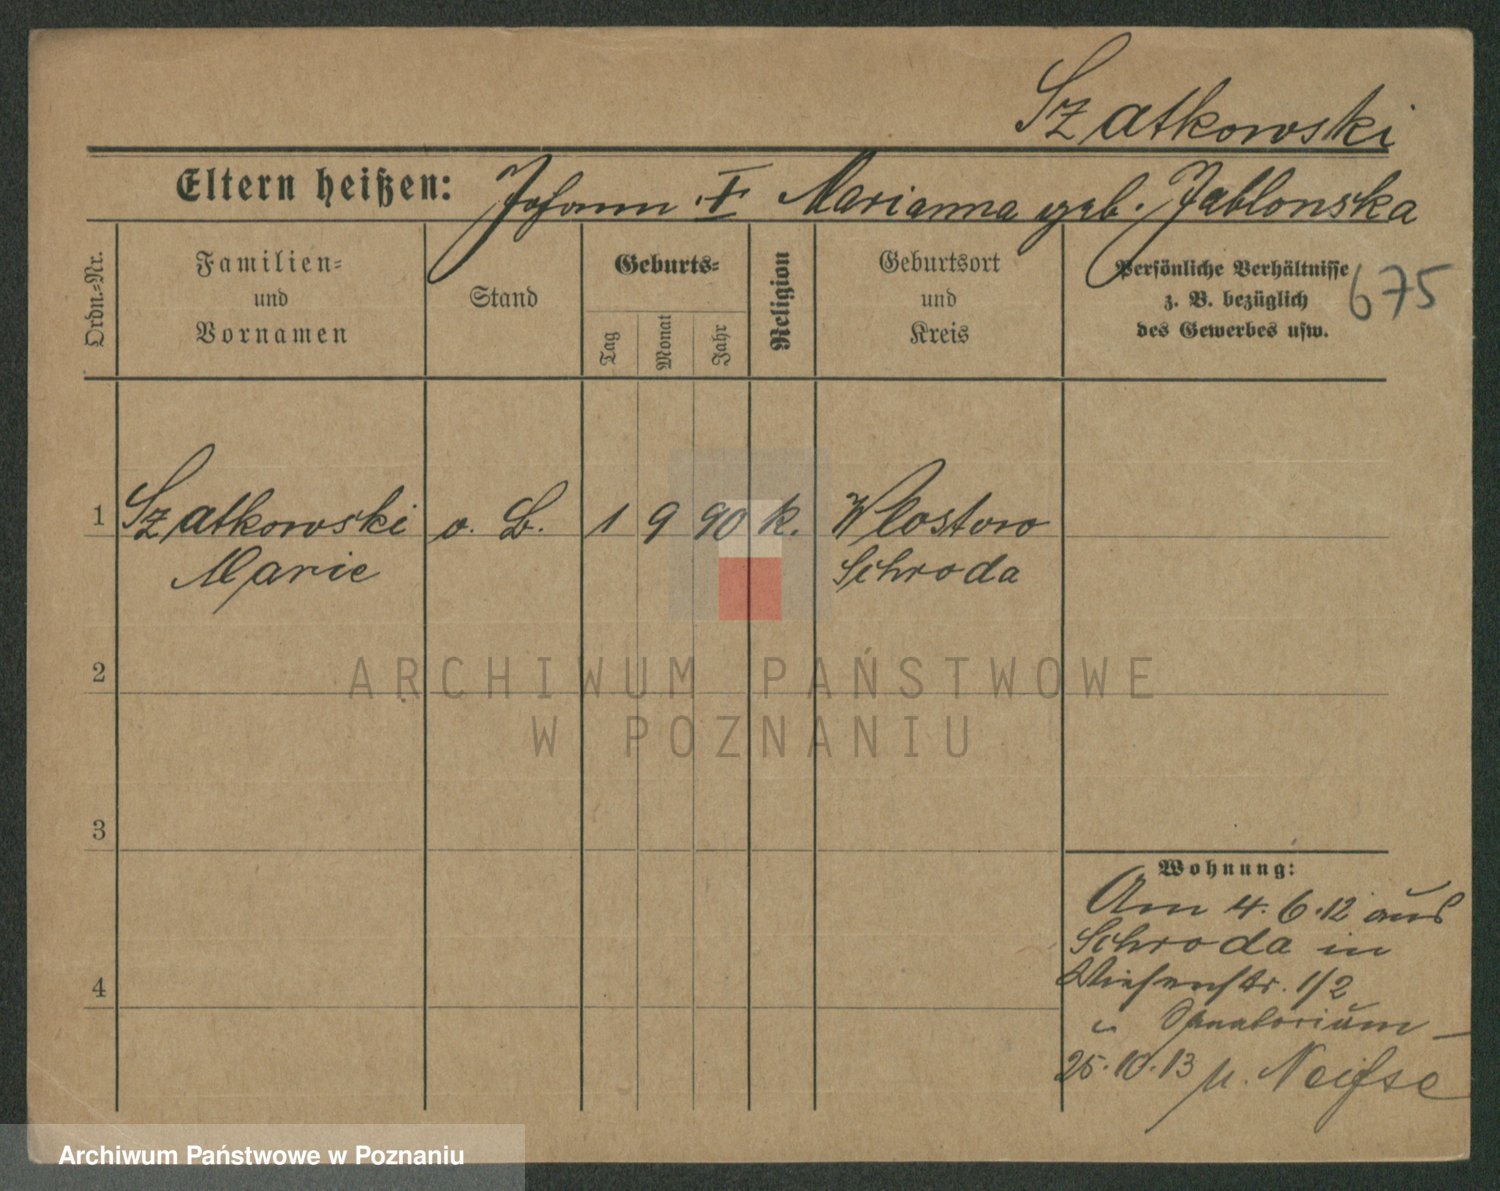 Szatkowski
Eltern heißen: Johann I Marianna geb. Jablonska
Ordn.-Nr.
Familien-
und
Vornamen
Stand
Geburts-
Tag
Monat
Jahr
Religion
Geburtsort
und
Kreis
Persönliche Verhältnisse
z. B. bezüglich
des Gewerbes usw.
675
1 Szatkowski o. B. 1 9 90 k. Wlostowo
Marie Schroda
2
ARCHIWUM PAŃSTWOWE
W POZNANIU
3
4
Wohnung:
Am 4.6.12 aus
Schroda in
Wiesenstr. 1/2
Sanatorium
25.10.13 n. Neisse
Archiwum Państwowe w Poznaniu